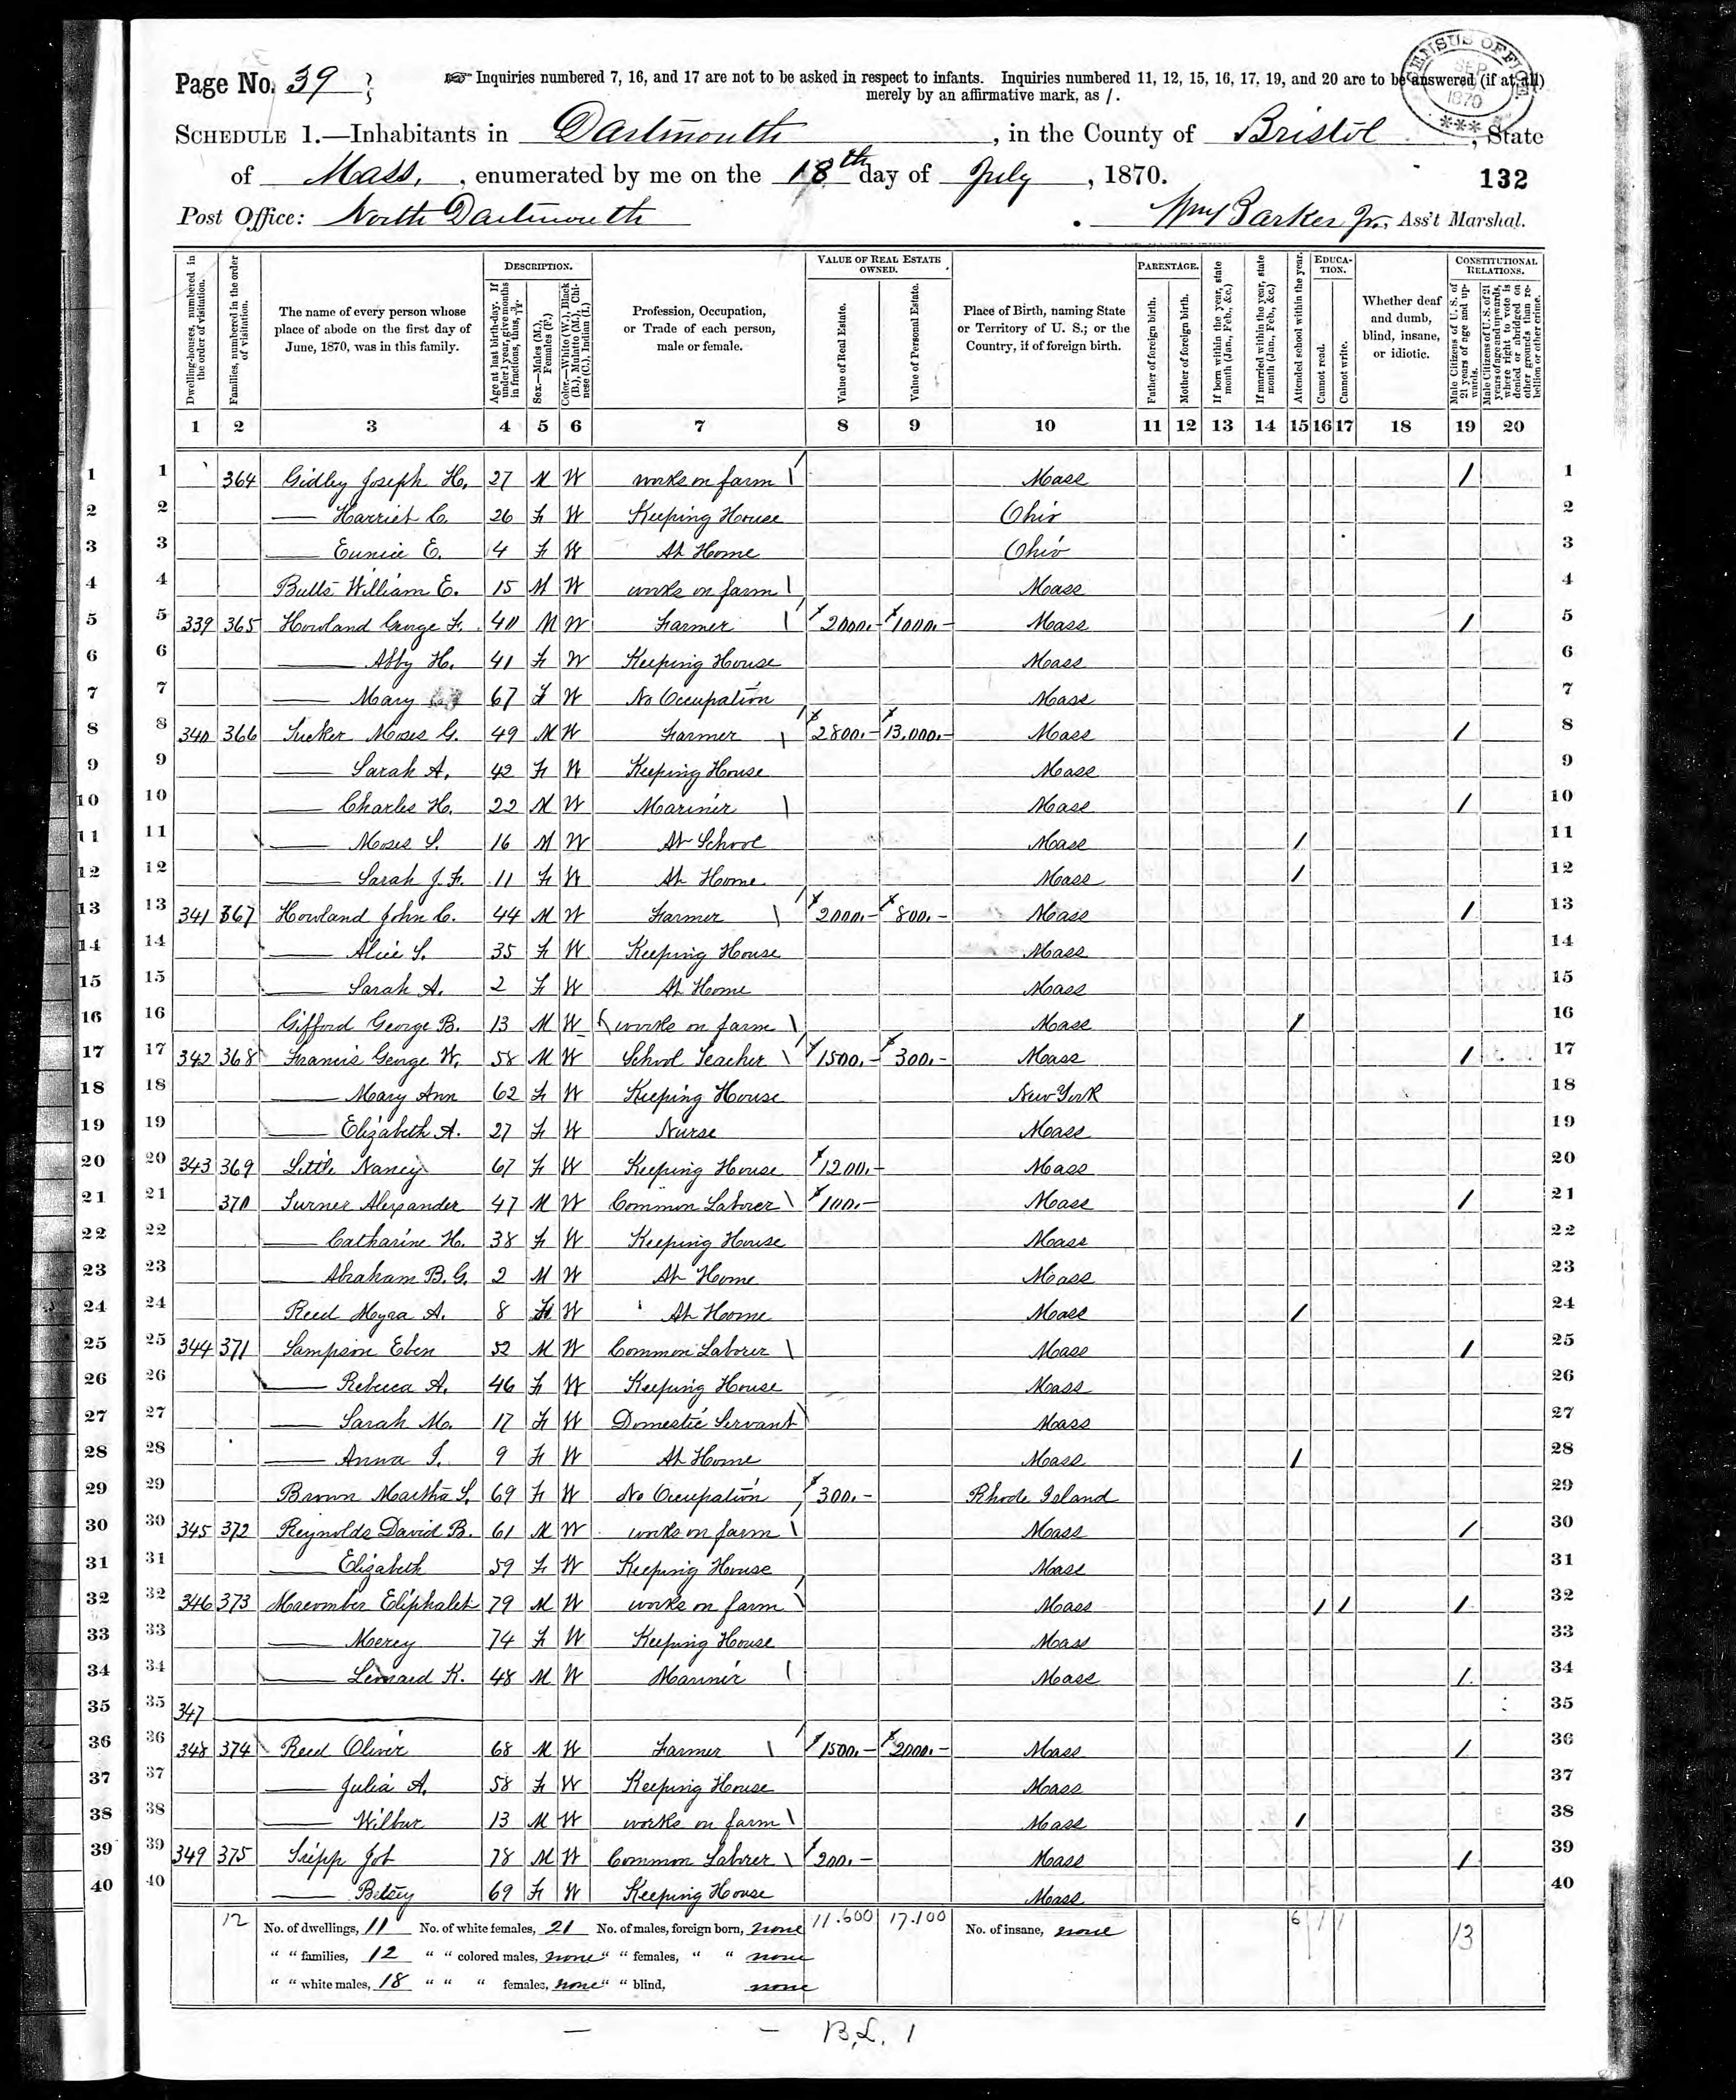 Page No. 39
☞ Inquiries numbered 7, 16, and 17 are not to be asked in respect to infants. Inquiries numbered 11, 12, 15, 16, 17, 19, and 20 are to be answered (if at all)
merely by an affirmative mark, as /.
CENSUS OFFICE SEP 1870 ***
SCHEDULE 1.—Inhabitants in Dartmouth, in the County of Bristol, State
of Mass, enumerated by me on the 18th day of July, 1870. 132
Post Office: North Dartmouth . Wm Barker Jr., Ass't Marshal.
Dwelling-houses, numbered in the order of visitation.
Families, numbered in the order of visitation.
The name of every person whose place of abode on the first day of June, 1870, was in this family.
DESCRIPTION.
Age at last birth-day. If under 1 year, give months in fractions, thus, 3/12.
Sex.—Males (M.), Females (F.)
Color.—White (W.), Black (B.), Mulatto (M.), Chinese (C.), Indian (I.)
Profession, Occupation, or Trade of each person, male or female.
VALUE OF REAL ESTATE OWNED.
Value of Real Estate.
Value of Personal Estate.
Place of Birth, naming State or Territory of U. S.; or the Country, if of foreign birth.
PARENTAGE.
Father of foreign birth.
Mother of foreign birth.
If born within the year, state month (Jan., Feb., &c.)
If married within the year, state month (Jan., Feb., &c.)
Attended school within the year.
EDUCATION.
Cannot read.
Cannot write.
Whether deaf and dumb, blind, insane, or idiotic.
CONSTITUTIONAL RELATIONS.
Male Citizens of U. S. of 21 years of age and upwards.
Male Citizens of U. S. of 21 years of age and upwards, where right to vote is denied or abridged on other grounds than rebellion or other crime.
1 2 3 4 5 6 7 8 9 10 11 12 13 14 15 16 17 18 19 20
1 1 364 Gidley Joseph H. 27 M W works on farm Mass / 1
2 2 — Harriet C. 26 F W Keeping House Ohio 2
3 3 — Eunice E. 4 F W At Home Ohio 3
4 4 Butts William E. 15 M W works on farm Mass 4
5 5 339 365 Howland George F. 40 M W Farmer $2000.- $1000.- Mass / 5
6 6 — Abby H. 41 F W Keeping House Mass 6
7 7 — Mary 67 F W No Occupation Mass 7
8 8 340 366 Tucker Moses G. 49 M W Farmer $2800.- $13.000.- Mass / 8
9 9 — Sarah A. 42 F W Keeping House Mass 9
10 10 — Charles H. 22 M W Mariner Mass / 10
11 11 — Moses S. 16 M W At School Mass / 11
12 12 — Sarah J. F. 11 F W At Home Mass / 12
13 13 341 367 Howland John C. 44 M W Farmer $2000.- $800.- Mass / 13
14 14 — Alice S. 35 F W Keeping House Mass 14
15 15 — Sarah A. 2 F W At Home Mass 15
16 16 Gifford George B. 13 M W works on farm Mass / 16
17 17 342 368 Francis George W. 58 M W School Teacher $1500.- $300.- Mass / 17
18 18 — Mary Ann 62 F W Keeping House New York 18
19 19 — Elizabeth A. 27 F W Nurse Mass 19
20 20 343 369 Little Nancy 67 F W Keeping House $1200.- Mass 20
21 21 370 Turner Alexander 47 M W Common Laborer $100.- Mass / 21
22 22 — Catharine H. 38 F W Keeping House Mass 22
23 23 — Abraham B. G. 2 M W At Home Mass 23
24 24 Reed Myra A. 8 F W At Home Mass / 24
25 25 344 371 Sampson Eben 52 M W Common Laborer Mass / 25
26 26 — Rebecca A. 46 F W Keeping House Mass 26
27 27 — Sarah M. 17 F W Domestic Servant Mass 27
28 28 — Anna 9 F W At Home Mass / 28
29 29 Brown Martha S. 69 F W No Occupation $300.- Rhode Island 29
30 30 345 372 Reynolds David B. 61 M W works on farm Mass / 30
31 31 — Elizabeth 59 F W Keeping House Mass 31
32 32 346 373 Macomber Eliphalet 79 M W works on farm Mass / / / 32
33 33 — Mercy 74 F W Keeping House Mass 33
34 34 — Leonard K. 48 M W Mariner Mass / 34
35 35 347 35
36 36 348 374 Reed Oliver 68 M W Farmer $1500.- $2000.- Mass / 36
37 37 — Julia A. 58 F W Keeping House Mass 37
38 38 — Wilbur 13 M W works on farm Mass / 38
39 39 349 375 Tripp Job 78 M W Common Laborer $200.- Mass / 39
40 40 — Betsey 69 F W Keeping House Mass 40
12 No. of dwellings, 11 No. of white females, 21 No. of males, foreign born, none 11.600 17.100 No. of insane, none 6 1 1 13
" " families, 12 " " colored males, none " " females, " " none
" " white males, 18 " " " females, none " " blind, none
B.L. 1